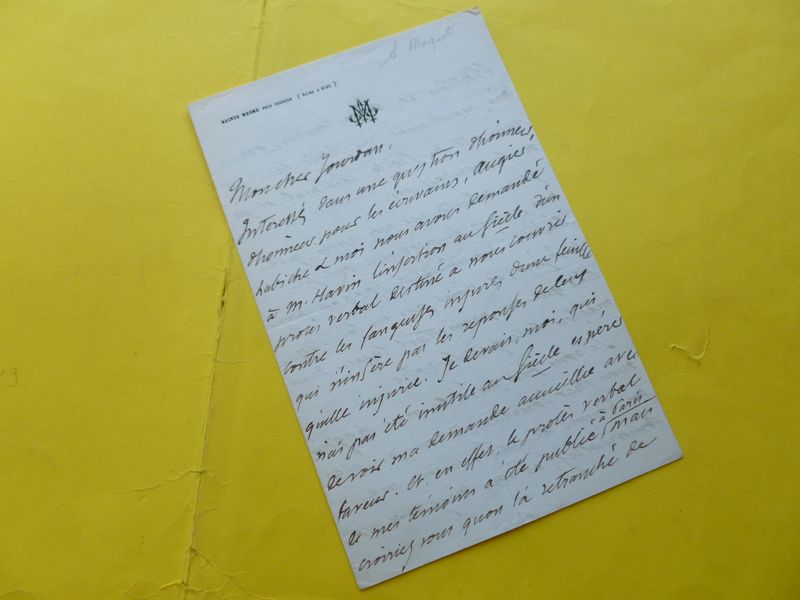 A Maquet
SAINTE MESME PRÈS DOURDAN (SEINE & OISE)
AM
Mon cher Jourdan,
Interessés dans une question d'honneur,
d'honneur pour les écrivains, Augier,
Labiche & moi nous avons demandé
à M. Havin l'insertion au Siècle d'un
procès verbal destiné a nous couvrir
contre les injures d'une feuille
qui n'insère pas les reponses de ceux
qu'elle injurie. Je devais, moi, qui
n'ai pas été inutile au Siècle espérer
de voir ma demande accueillie avec
faveur. Et, en effet, le procès verbal
de mes témoins a été publié à Paris mais
croiriez vous qu'on l'a retranché de